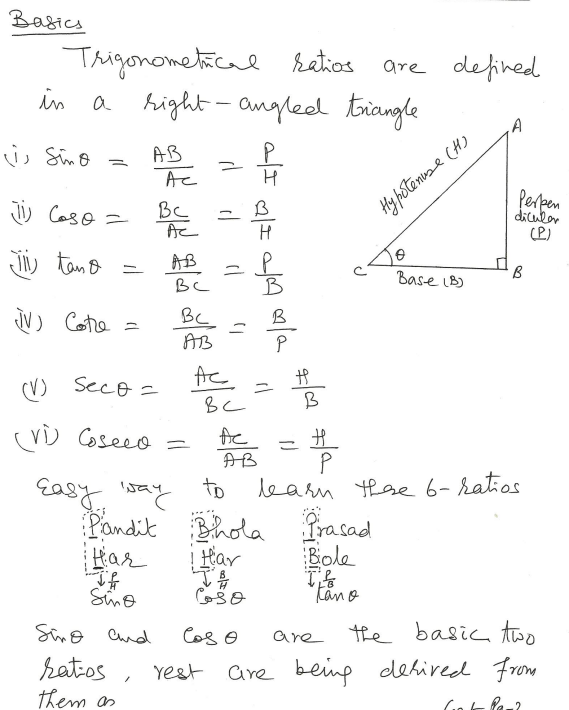 Basics
Trigonometrical ratios are defined
in a right-angled triangle
(i) Sinθ = AB/AC = P/H
(ii) Cosθ = BC/AC = B/H
(iii) tanθ = AB/BC = P/B
(iv) Cotθ = BC/AB = B/P
(v) Secθ = AC/BC = H/B
(vi) Cosecθ = AC/AB = H/P
A
Hypotenuse (H)
Perpen
dicular
(P)
θ
C
B
Base (B)
Easy way to learn these 6-ratios
Pandit Bhola Prasad
Har Har Bole
↓ P/H ↓ B/H ↓ P/B
Sinθ Cosθ tanθ
Sinθ and Cosθ are the basic two
ratios, rest are being derived from
them as